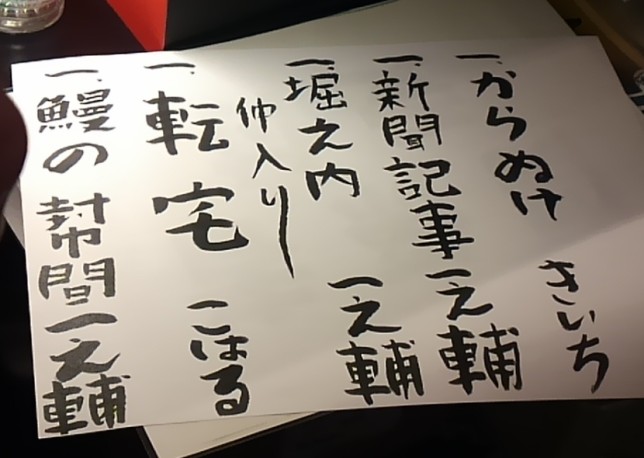 一、からぬけ きいち
一、新聞記事 一之輔
一、堀之内 一之輔
仲入り
一、転宅 こはる
一、鰻の幇間 一之輔